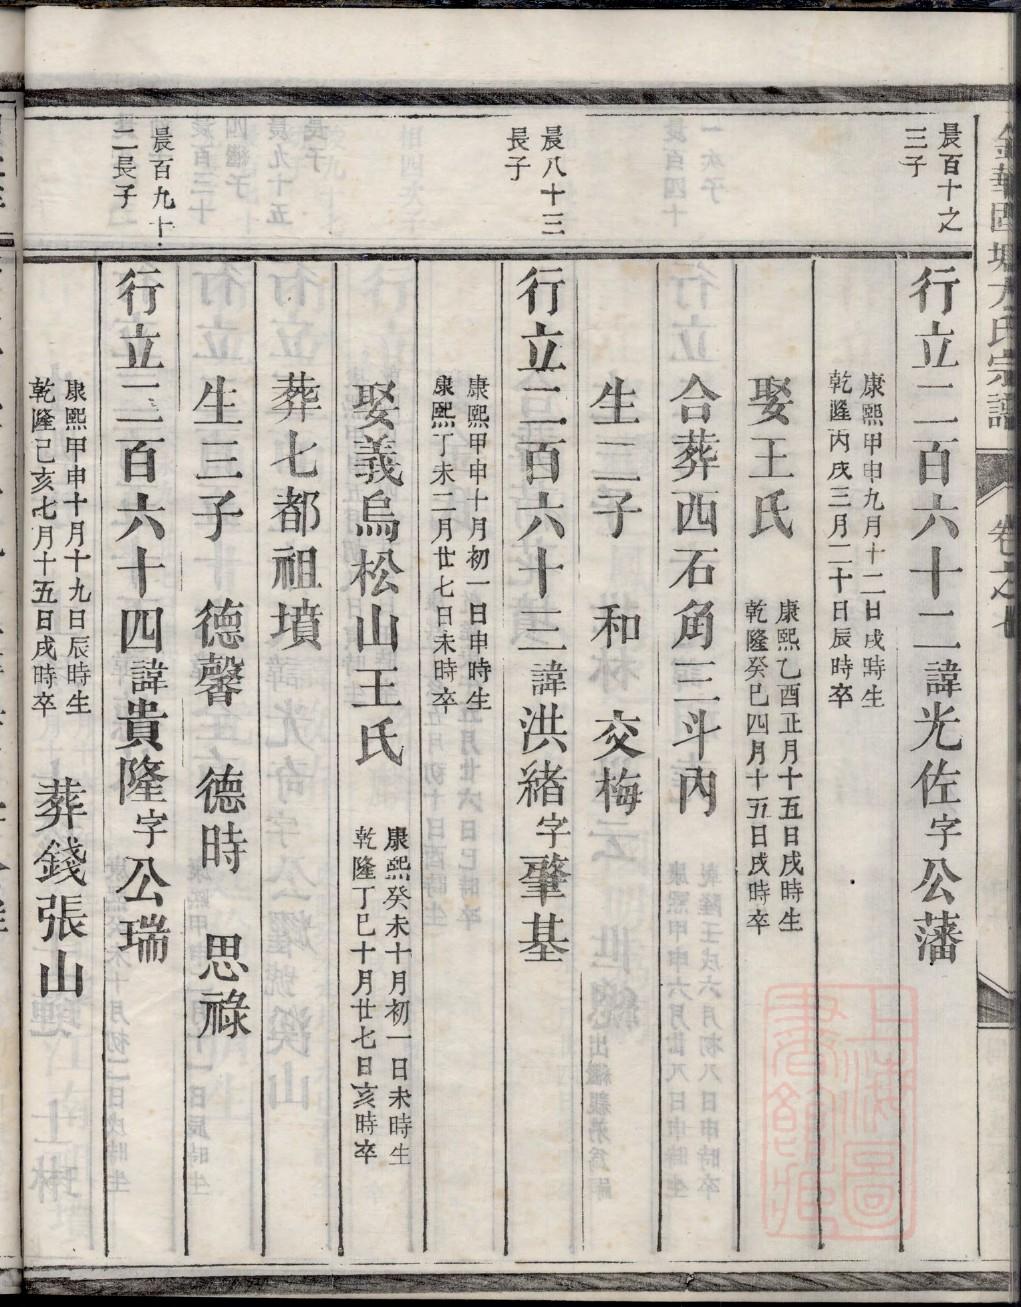 晨百十之
三子
行立二百六十二諱光佐字公藩
康熙甲申九月十二日戌時生
乾隆丙戌三月二十日辰時卒
娶王氏
康熙乙酉正月十五日戌時生
乾隆癸巳四月十五日戌時卒
合葬西石角三斗內
生二子 和 交梅
晨八十三
長子
行立二百六十三諱洪緒字肇基
康熙甲申十月初一日申時生
康熙丁未二月廿七日未時卒
娶義烏松山王氏
康熙癸未十月初一日未時生
乾隆丁巳十月廿七日亥時卒
葬七都祖墳
生三子 德馨 德時 思祿
晨百九十
二長子
行立二百六十四諱貴隆字公瑞
康熙甲申十月十九日辰時生
乾隆己亥七月十五日戌時卒
葬錢張山